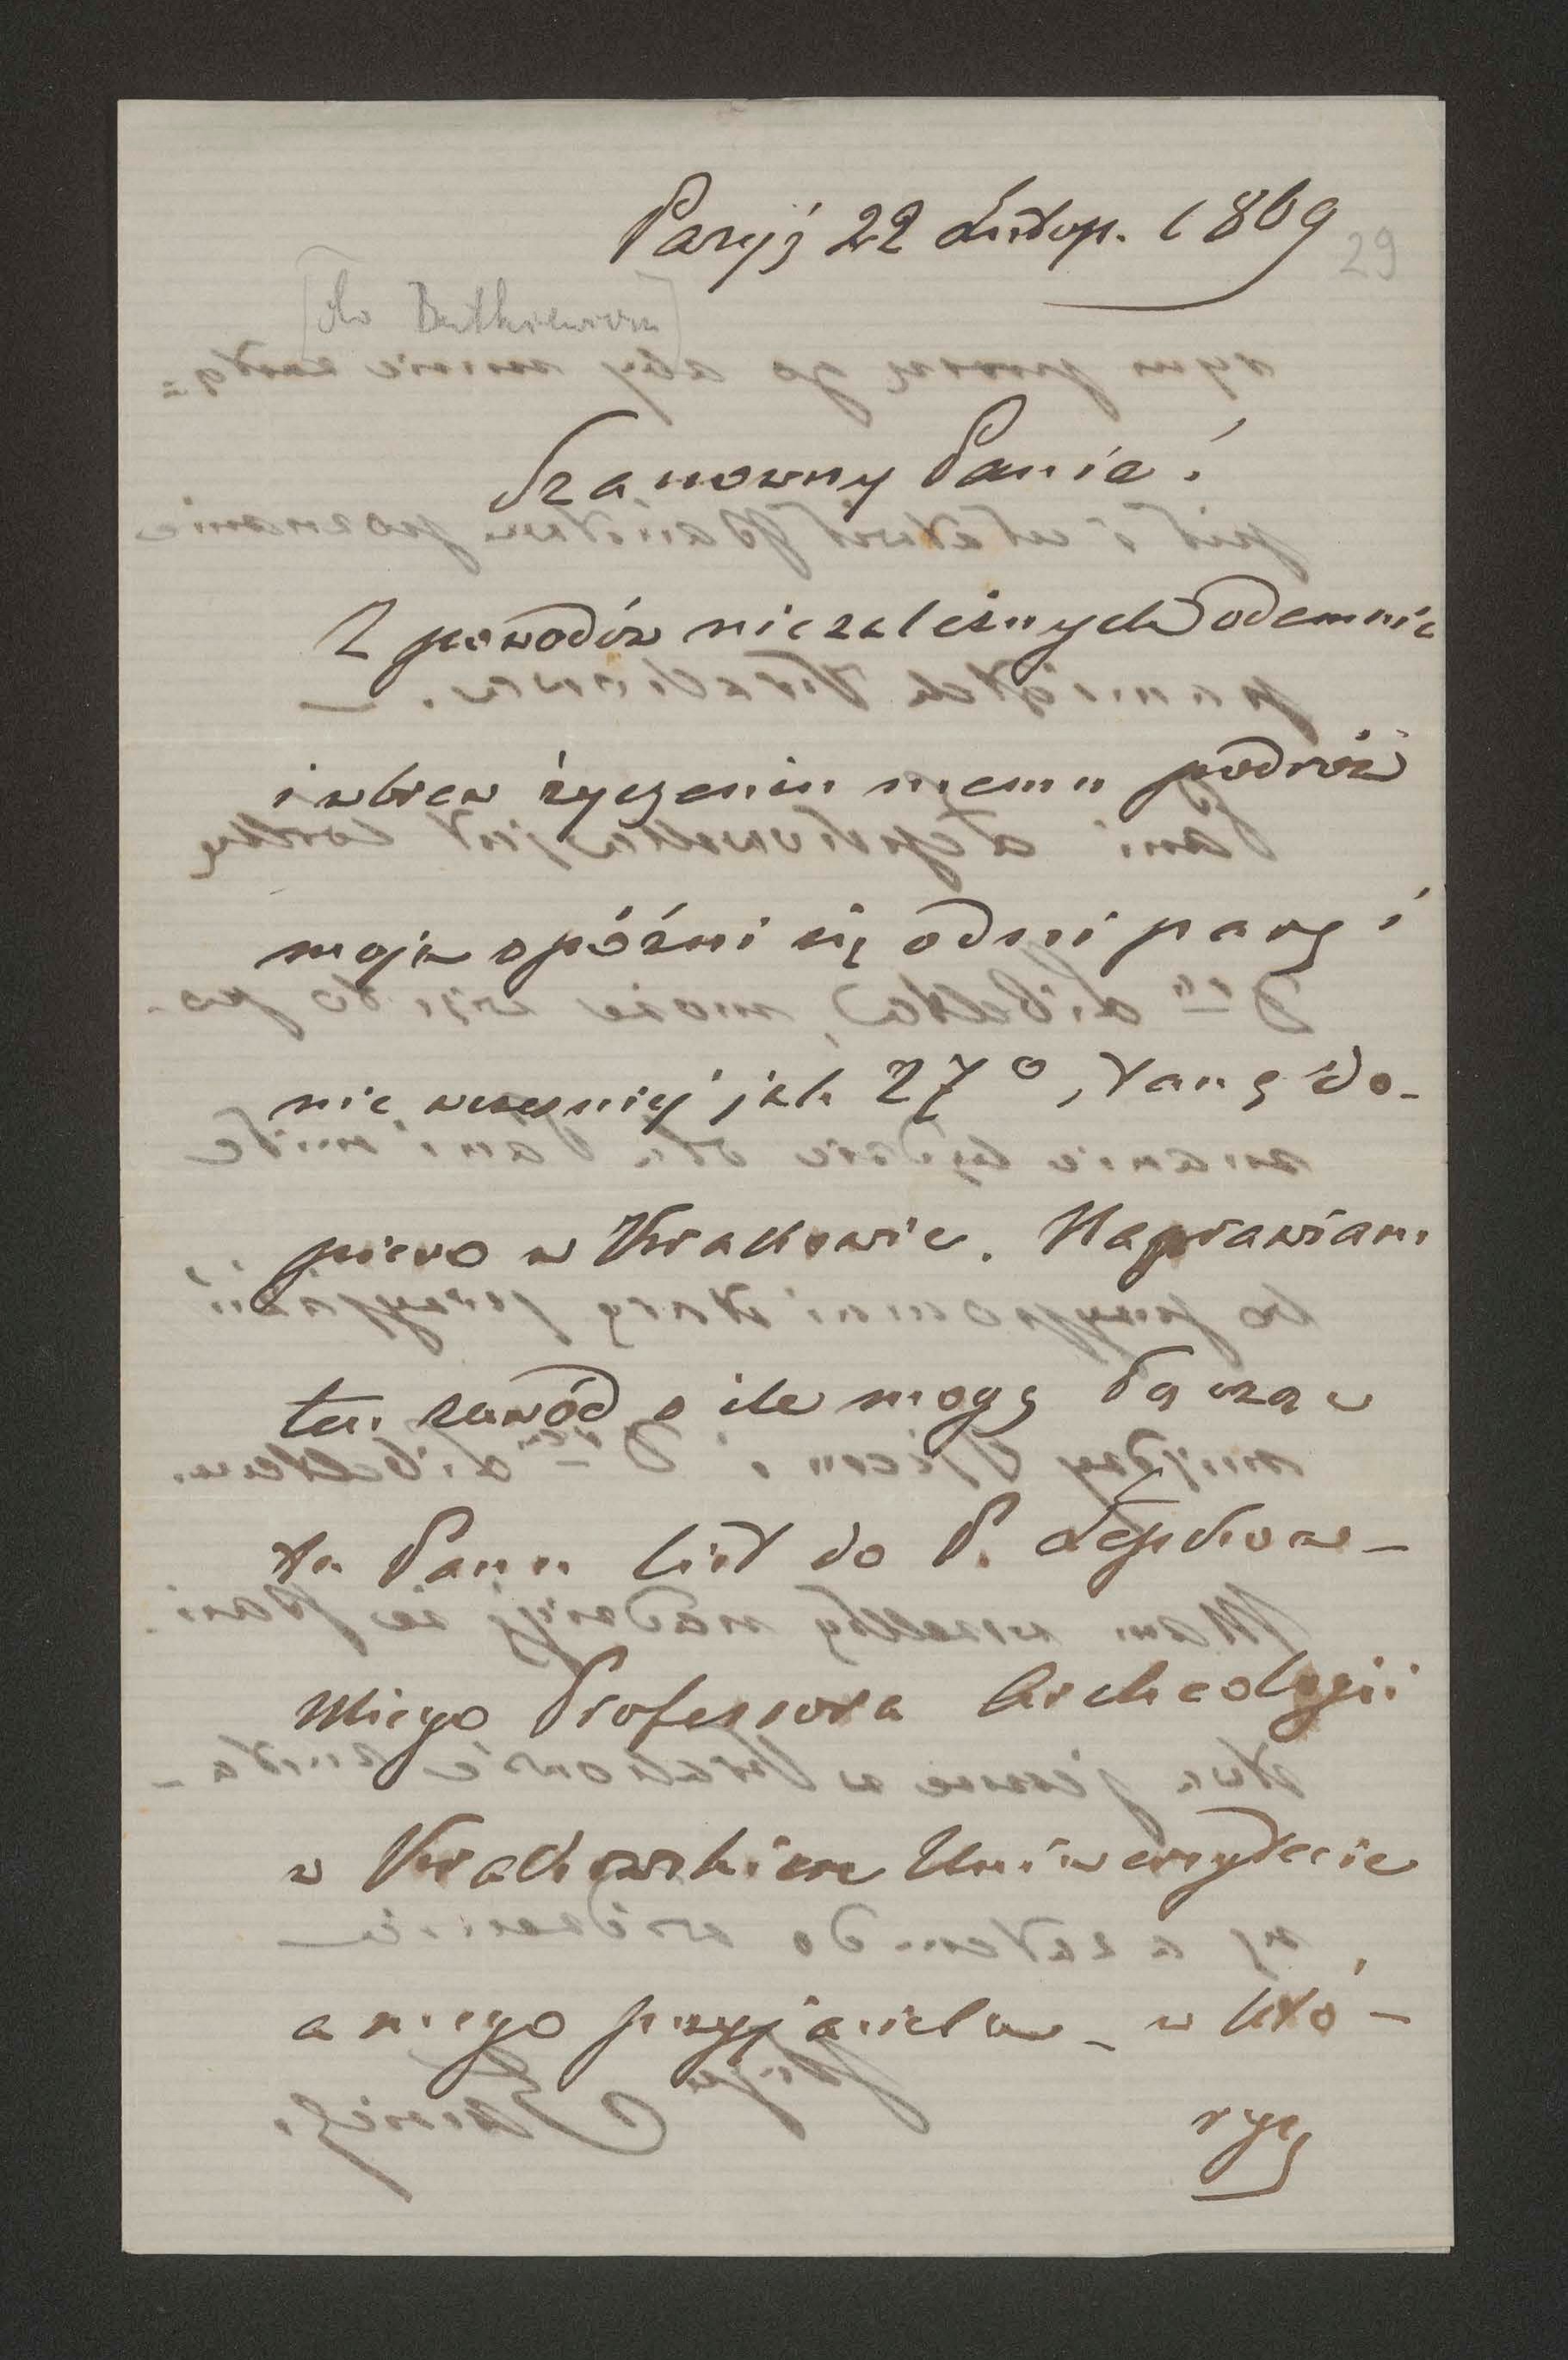 Paryż 22 Listop. 1869
29
[do Butkiewicza]
Szanowny Panie!
Z powodów niezależnych odemnie
i wbrew życzeniu memu podróż
moja opóźni się o dni parę i
nie wcześniej jak 27º, stanę do-
piero w Krakowie. Naprawiam
ten zawód o ile mogę łącząc
tu Panu list do P. Łepkow-
skiego Professora Archeologii
w Krakowskiem Uniwersytecie
a mego przyjaciela - w któ-
rym